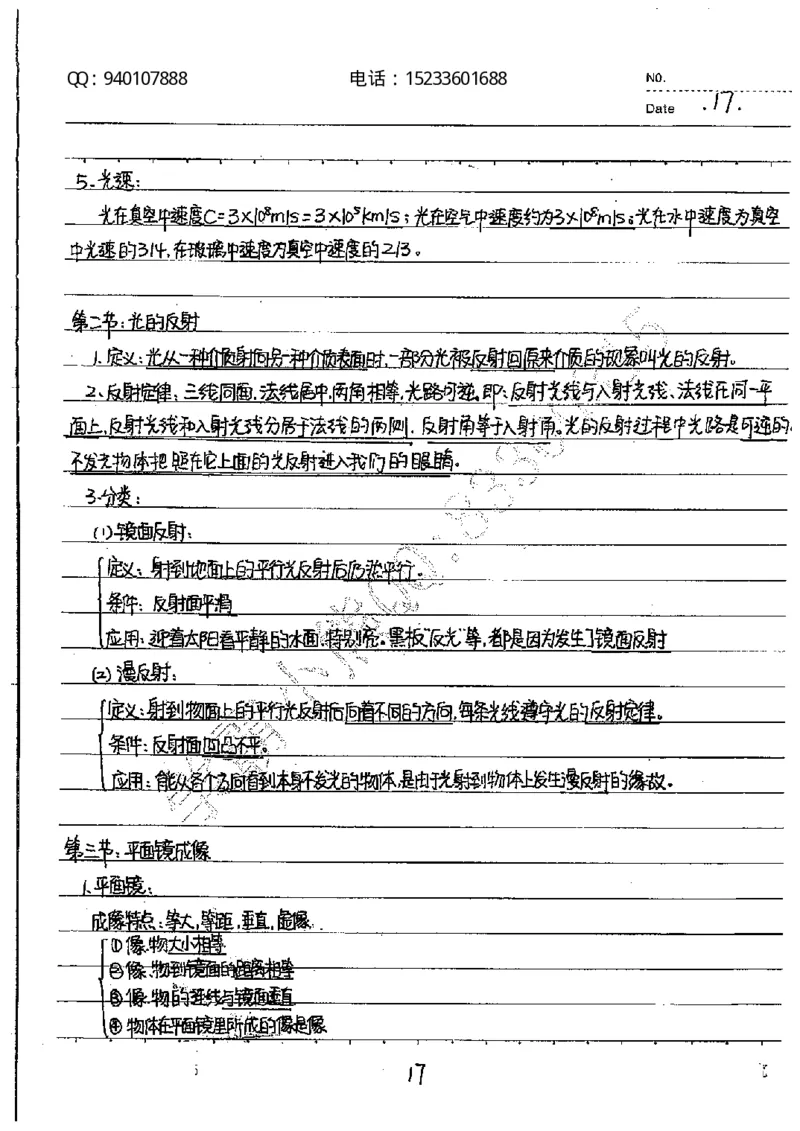 QQ：940107888 电话：15233601688 NO.
Date .17.
5.光速：
光在真空中速度C=3×10⁸m/s=3×10⁵km/s；光在空气中速度约为3×10⁸m/s；光在水中速度为真空
中光速的3/4，在玻璃中速度为真空中速度的2/3。
第二节：光的反射
1、定义：光从一种介质射向另一种介质表面时，一部分光被反射回原来介质的现象叫光的反射。
2、反射定律：三线同面，法线居中，两角相等，光路可逆，即：反射光线与入射光线、法线在同一平
面上，反射光线和入射光线分居于法线的两侧，反射角等于入射角。光的反射过程中光路是可逆的。
不发光物体把照在它上面的光反射进入我们的眼睛。
3.分类：
(1)镜面反射：
定义：射到物面上的平行光反射后仍然平行。
条件：反射面平滑
应用：迎着太阳看平静的水面，特别亮。黑板“反光”等，都是因为发生了镜面反射
(2)漫反射：
定义：射到物面上的平行光反射后向着不同的方向，每条光线遵守光的反射定律。
条件：反射面凹凸不平。
应用：能从各个方向看到本身不发光的物体，是由于光射到物体上发生漫反射的缘故。
第三节：平面镜成像
1.平面镜：
成像特点：等大，等距，垂直，虚像
①像、物大小相等
②像、物到镜面的距离相等
③像、物的连线与镜面垂直
④物体在平面镜里所成的像是像
17